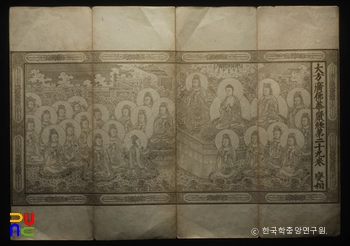 大方廣佛華嚴經第二十七卷 變相
© 한국학중앙연구원